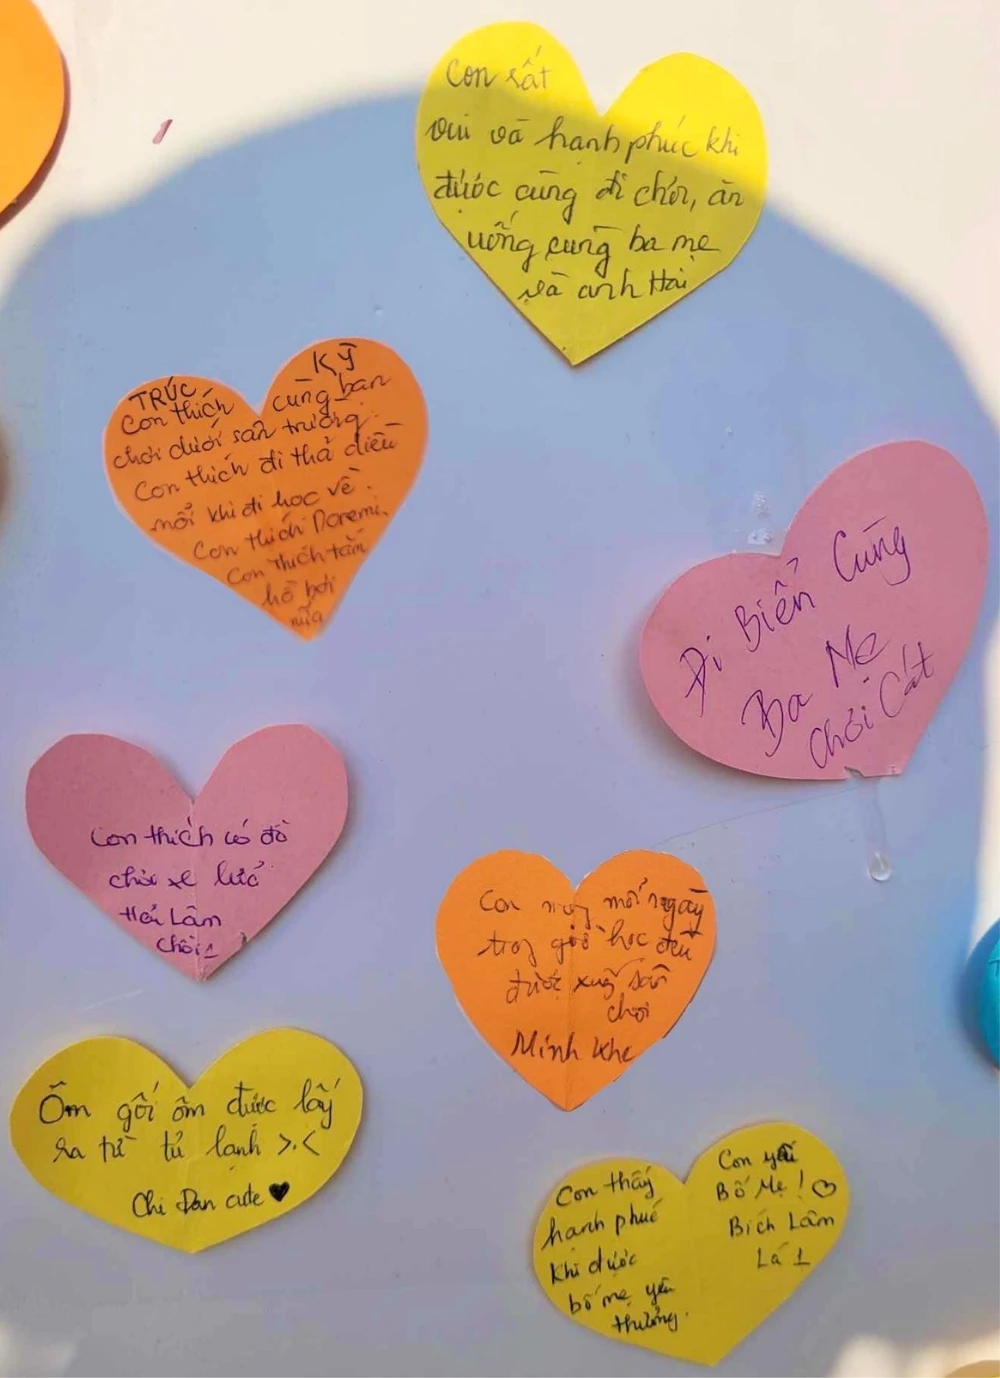 Con rất
vui và hạnh phúc khi
được cùng đi chơi, ăn
uống cùng ba mẹ
và anh Hai
TRÚC KỲ
Con thích cùng bạn
chơi dưới sân trường.
Con thích đi thả diều
mỗi khi đi học về.
Con thích Doremi.
Con thích tắm
hồ bơi
nữa
Đi Biển Cùng
Ba Mẹ
chơi Cát
Con thích có đồ
chơi xe
Hải Lâm
Chồi 1
Con mỗi ngày
trog giờ học đều
được sân
chơi
Minh Khe
Ôm gối ôm được lấy
ra từ tủ lạnh >.<
Chi Đan cute ♥
Con thấy
hạnh phúc
khi được
bố mẹ yêu
thương.
Con yêu
Bố Mẹ! ♡
Bích Lâm
Lá 1